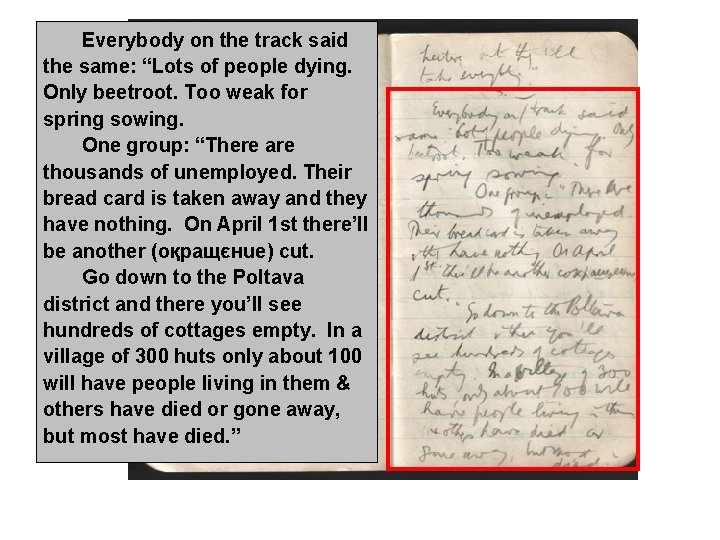 Everybody on the track said
the same: “Lots of people dying.
Only beetroot. Too weak for
spring sowing.
One group: “There are
thousands of unemployed. Their
bread card is taken away and they
have nothing. On April 1st there’ll
be another (oқращєнue) cut.
Go down to the Poltava
district and there you’ll see
hundreds of cottages empty. In a
village of 300 huts only about 100
will have people living in them &
others have died or gone away,
but most have died. ”
but they'll
take everything"
Everybody on track said
same "Lots people dying. Only
beetroot. Too weak for
spring sowing
One group:- "There are
thousands of unemployed.
Their bread card is taken away
& they have nothing On April
1st there'll be another
cut."
"Go down to the Poltava
district & there you'll
see hundreds of cottages
empty. In a village of 300
huts only about 100 will
have people living in them
& others have died or
gone away, but most
died.